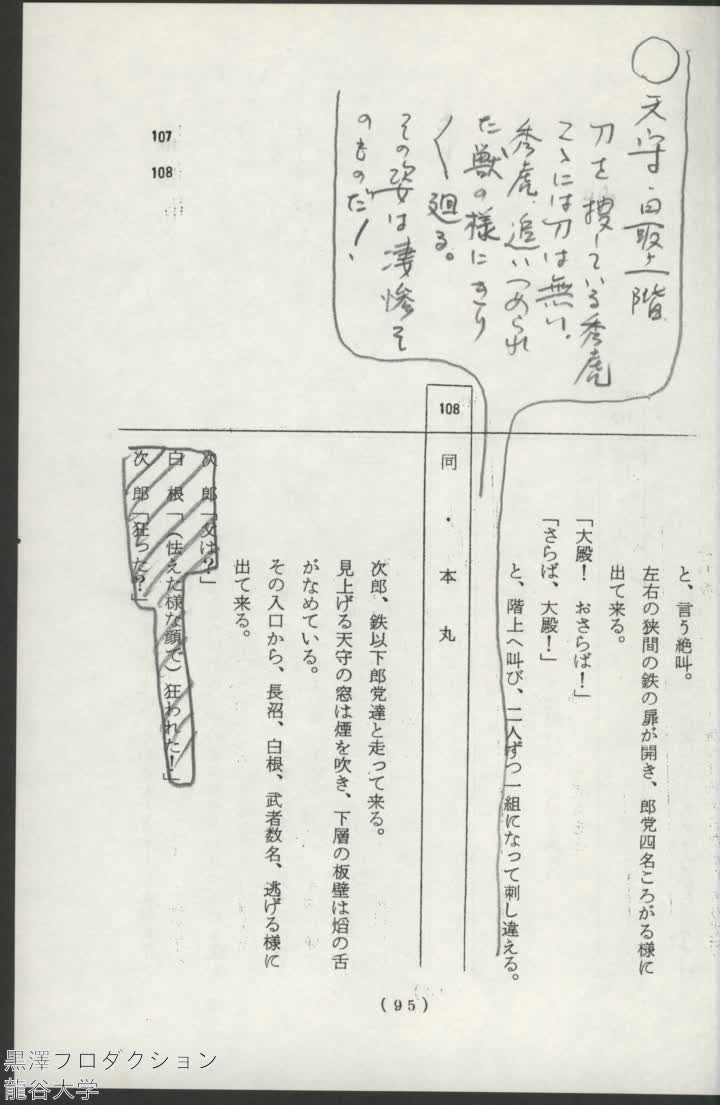 ○天守・最上階
刀を捜している秀虎
こゝには刀は無い。
秀虎、追いつめられ
た獣の様にきり
〱廻る。
その姿は凄惨そ
のものだ！
107
108
と、言う絶叫。
左右の狭間の鉄の扉が開き、郎党四名ころがる様に
出て来る。
「大殿！　おさらば！」
「さらば、大殿！」
と、階上へ叫び、二人ずつ一組になって刺し違える。
108
同・本丸
次郎、鉄以下郎党達と走って来る。
見上げる天守の窓は煙を吹き、下層の板壁は焰の舌
がなめている。
その入口から、長沼、白根、武者数名、逃げる様に
出て来る。
次郎「父は？」
白根「（怯えた様な顔で）狂われた！」
次郎「狂った？」
(95)
黒澤プロダクション
龍谷大学